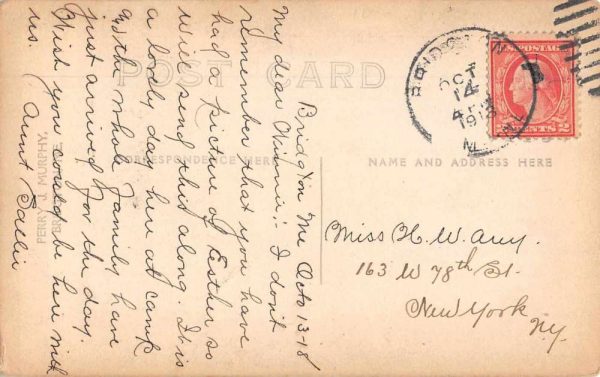 POST CARD
CORRESPONDENCE HERE
NAME AND ADDRESS HERE
Bridgton Me Oct 13-18
My dear Winnie:- I don't
remember that you have
had a picture of Esther so
will send this along. It is
a lovely day here at camp
and the whole family have
just arrived for the day.
Wish you could be here with
us.
Aunt Sallie
PERRY J. MURPHY,
BRIDGTON
OCT
14
1918
U.S. POSTAGE
2 CENTS 2
Miss H. W. Avry.
163 W 78th St.
New York
N.Y.